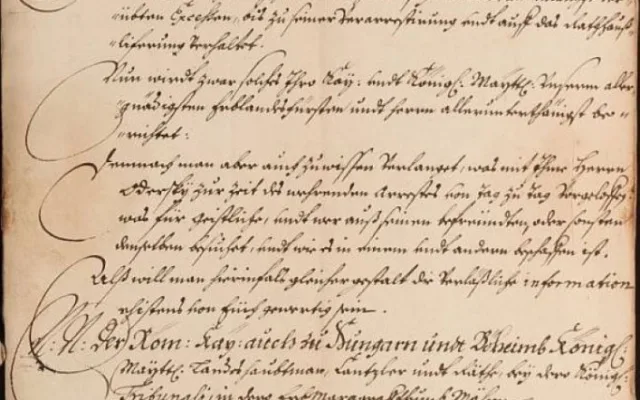 übten Excessen, bis zu seiner Verarrestirung undt auff das Rathhauß
lifferung verhaltet.
Nun wirdt zwar solches Ihro Kay: undt Königl: Maytt: Unserm aller
gnädigsten Erblandesfürsten undt Herrn allerunterthänigst be=
richtet:
Demnach man aber auch zu wissen verlanget, was mit Ihme Herrn
Odersky zur Zeit des wehrenden Arrestes von tag zu tag vorgeloffen,
was für geistliche, undt wer auß seinen befreündten, oder sonsten
denselben besuchet, undt wie es in einem undt andern beschaffen ist.
Alß will man hierinfals gleicher gestalt die verläßliche information
ehistens von Euch gewertig sein.
N: N: der Röm: Kay: auch zu Hungarn undt Beheimb Königl:
Maytt: Landeshaubtman, Cantzler undt Räthe, bey dero Königl:
Tribunali, in dero Erb Marggraffthumb Mähren